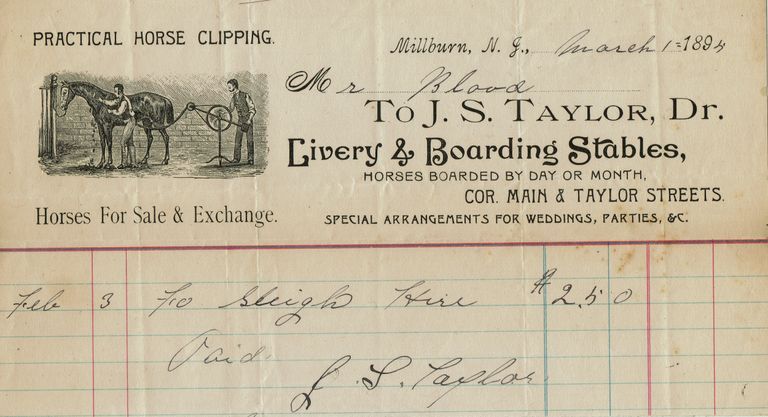 PRACTICAL HORSE CLIPPING.
Millburn, N. J., March 1 = 1894
Mr Blood
TO J. S. TAYLOR, Dr.
Livery & Boarding Stables,
HORSES BOARDED BY DAY OR MONTH,
COR. MAIN & TAYLOR STREETS.
Horses For Sale & Exchange.
SPECIAL ARRANGEMENTS FOR WEDDINGS, PARTIES, &C.
Feb 3 To Sleigh Hire $2.50
Paid.
J. S. Taylor